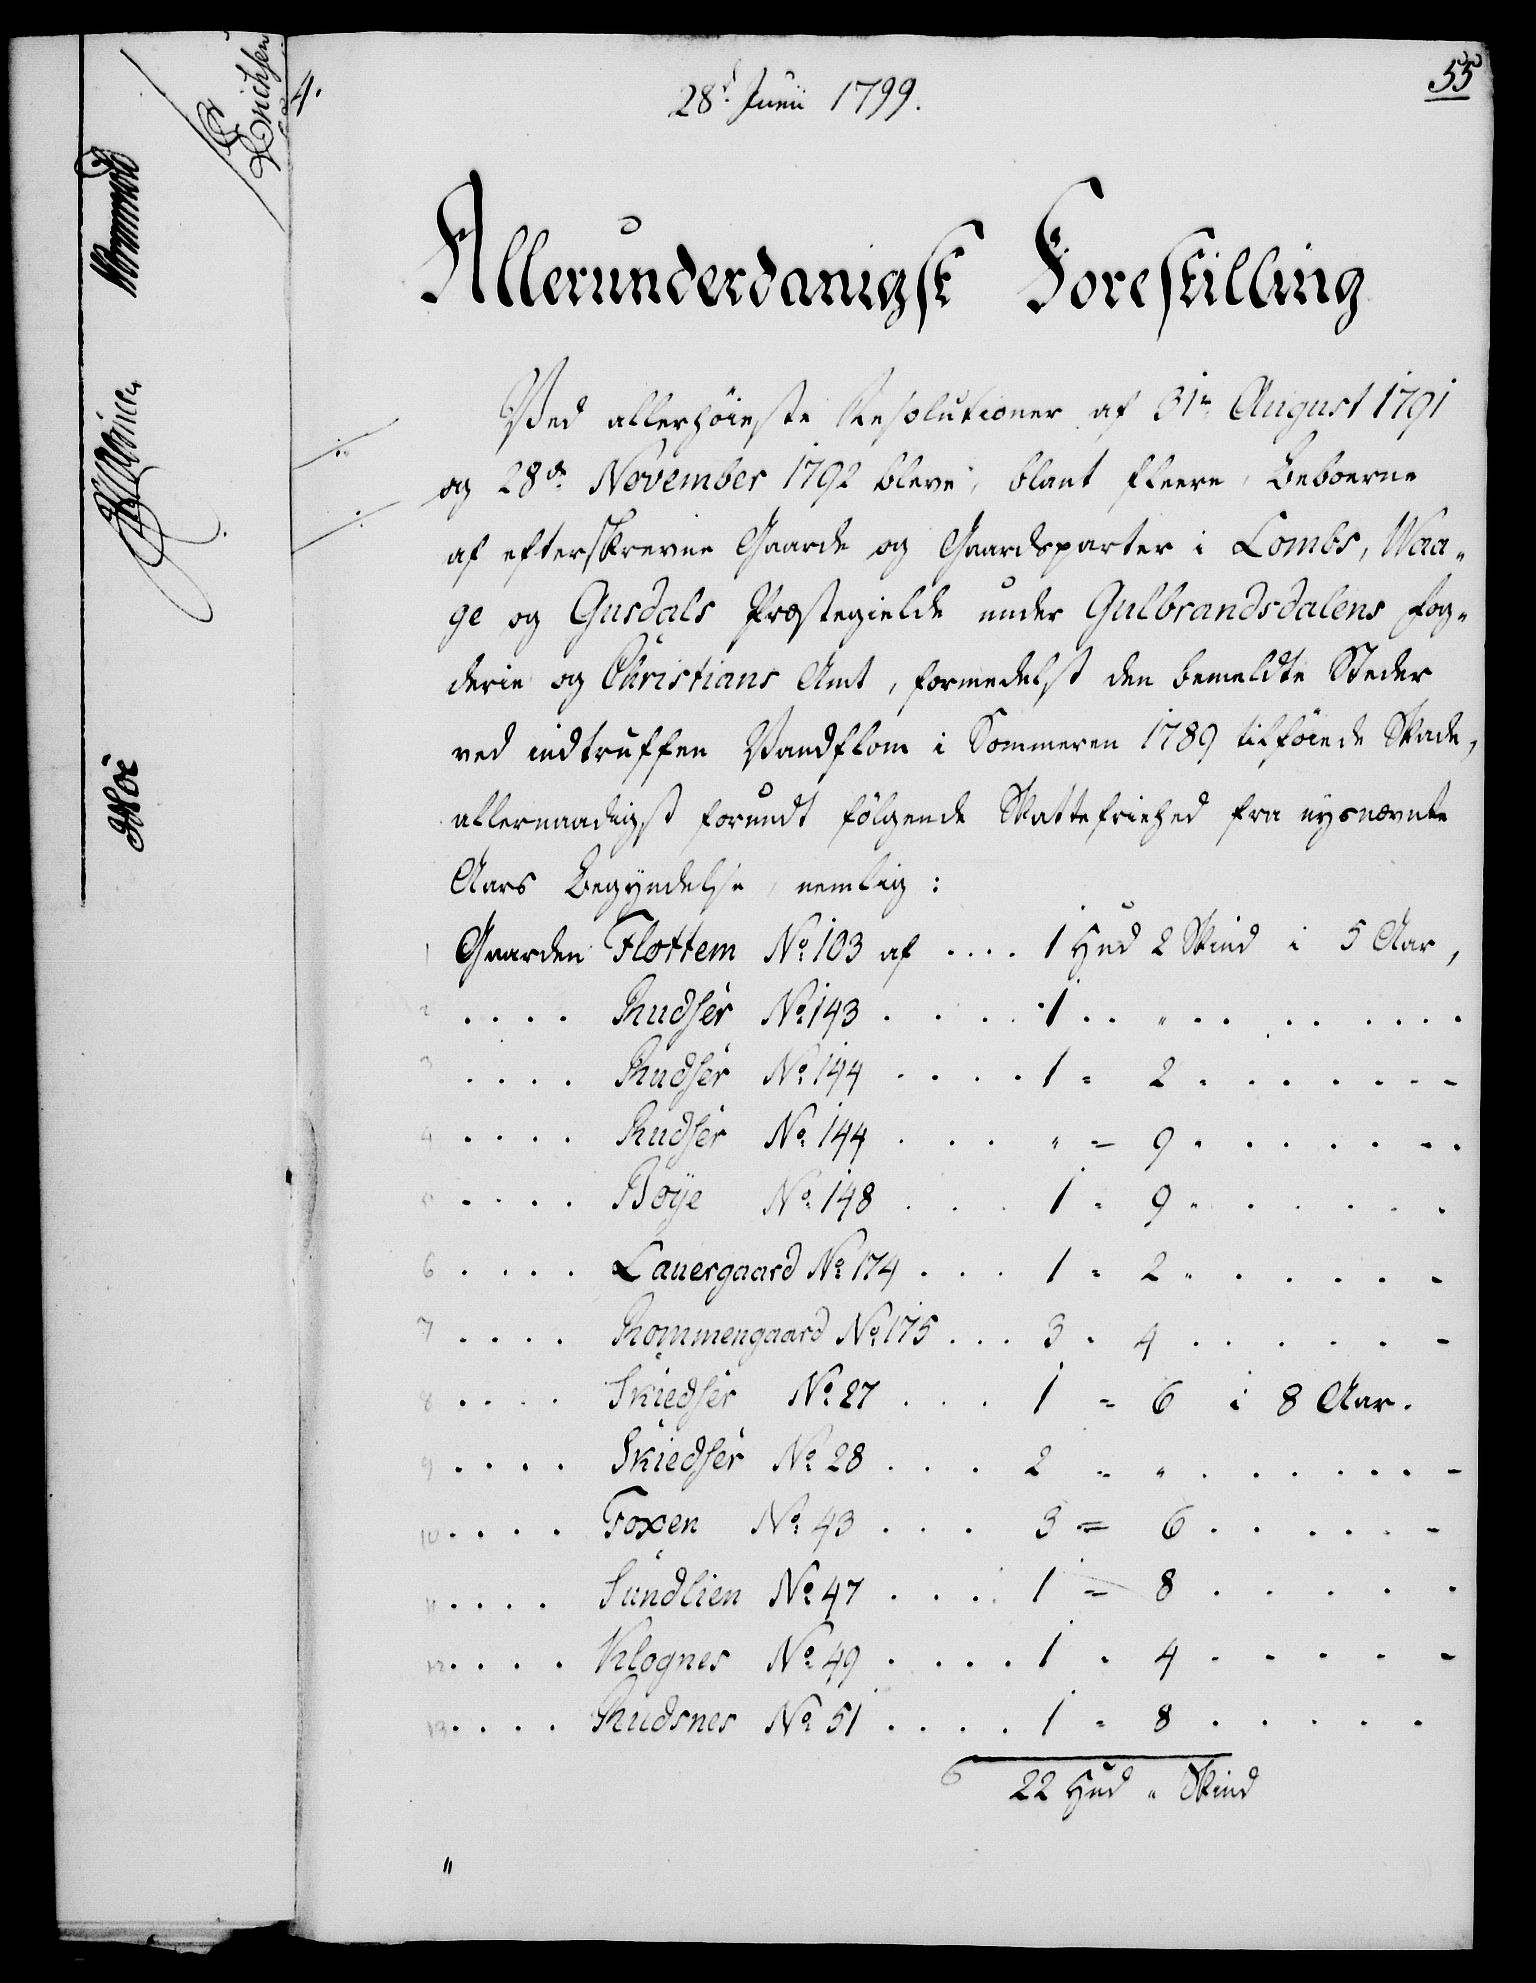 55
4.
28d Junii 1799.
Allerunderdanigst Forestilling
Ved allerhøieste Resolutioner af 31te August 1791
og 28de November 1792 bleve, blant fleere, Beboerne
af efterskrevne Gaarde og Gaardsparter i Lombs, Waa„
ge og Gusdals Præstegielde under Gulbrandsdalens Fog„
derie og Christians Amt, formedelst den bemeldte Steder
ved indtruffen Vandflom i Sommeren 1789 tilføiede Skade,
allernaadigst forundt følgende Skattefriehed fra nysnævnte
Aars Begyndelse, nemlig:
1 Gaarden Flottem No 103 af .... 1 Hud 2 Skind i 5 Aar,
2 .... Rudser No 143 .... 1 .. " .. .. ....
3 .... Rudser No 144 .... 1 = 2 .......
4 .... Rudser No 144 ... " = 9 .......
5 .... Bøye No 148 ... 1 = 9 ......
6 .... Lauergaard No 174 ... 1 = 2 ......
7 .... Rommengaard No 175 ... 3 = 4 ......
8 .... Skiedser No 27 ... 1 = 6 i 8 Aar.
9 .... Skiedser No 28 ... 2 = " .......
10 .... Foxen No 43 ... 3 = 6 ......
11 .... Sundlien No 47 .... 1 = 8 .....
12 .... Klognes No 49 .... 1 = 4 .....
13 .... Rudsnes No 51 .... 1 = 8 .....
22 Hud " Skind
"